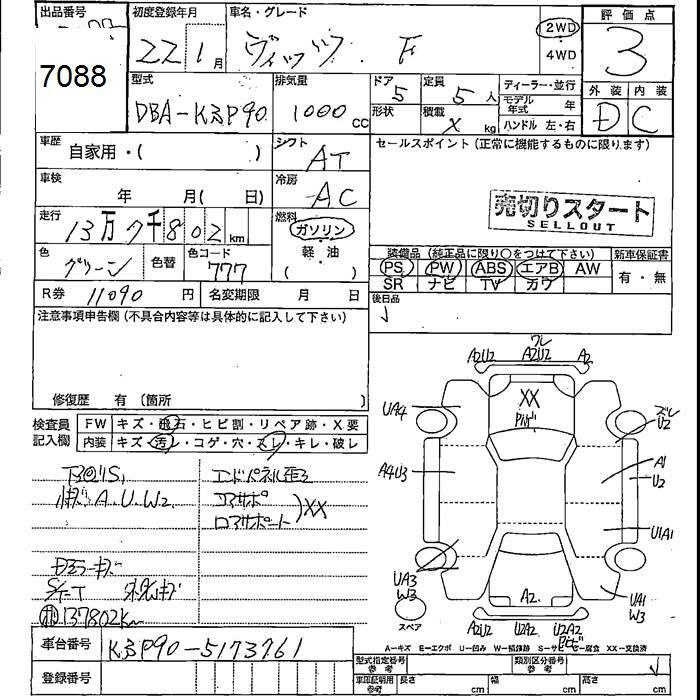 出品番号
7088
初度登録年月
22 1月
車名・グレード
ヴィッツ F
2WD
4WD
評価点
3
外装 内装
D C
型式
DBA-KSP90
排気量
1000 cc
ドア
5
形状
定員
5人
積載
X kg
ディーラー・並行
モデル年式 年
ハンドル 左・右
車歴
自家用・( )
シフト
AT
セールスポイント(正常に機能するものに限ります)
車検
年 月( 日)
冷房
AC
売切りスタート
SELLOUT
走行
13万7千802km
燃料
ガソリン
軽・油
( )
色
グリーン
色替
色コード
777
装備品(純正品に限り○をつけて下さい)
PS PW ABS エアB AW
SR ナビ TV カワ
新車保証書
有・無
R券 11090円
名変期限 月 日
後日品
注意事項申告欄(不具合内容等は具体的に記入して下さい)
修復歴 有(箇所 )
検査員記入欄
FW キズ・飛石・ヒビ割・リペア跡・X要
内装 キズ・汚レ・コゲ・穴・スレ・キレ・破レ
A2U2 ワレ A2U2 A2
XX
UA4
ズレ U2
A4U3
A1
U2
U1A1
UA3
W3
A2
UA1
W3
スペア
A2U2 U2A2 U2A2
A.U.W2
エンドパネル歪ミ
コアサポ
ロアサポート
XX
137802Km
車台番号 KSP90-5173761
登録番号
A=キズ E=エクボ U=凹み W=補修跡 S=サビ C=腐食 XX=交換済
型式指定番号 参考
類別区分番号 参考
車庫証明用 参考 長さ cm 幅 cm 高さ cm